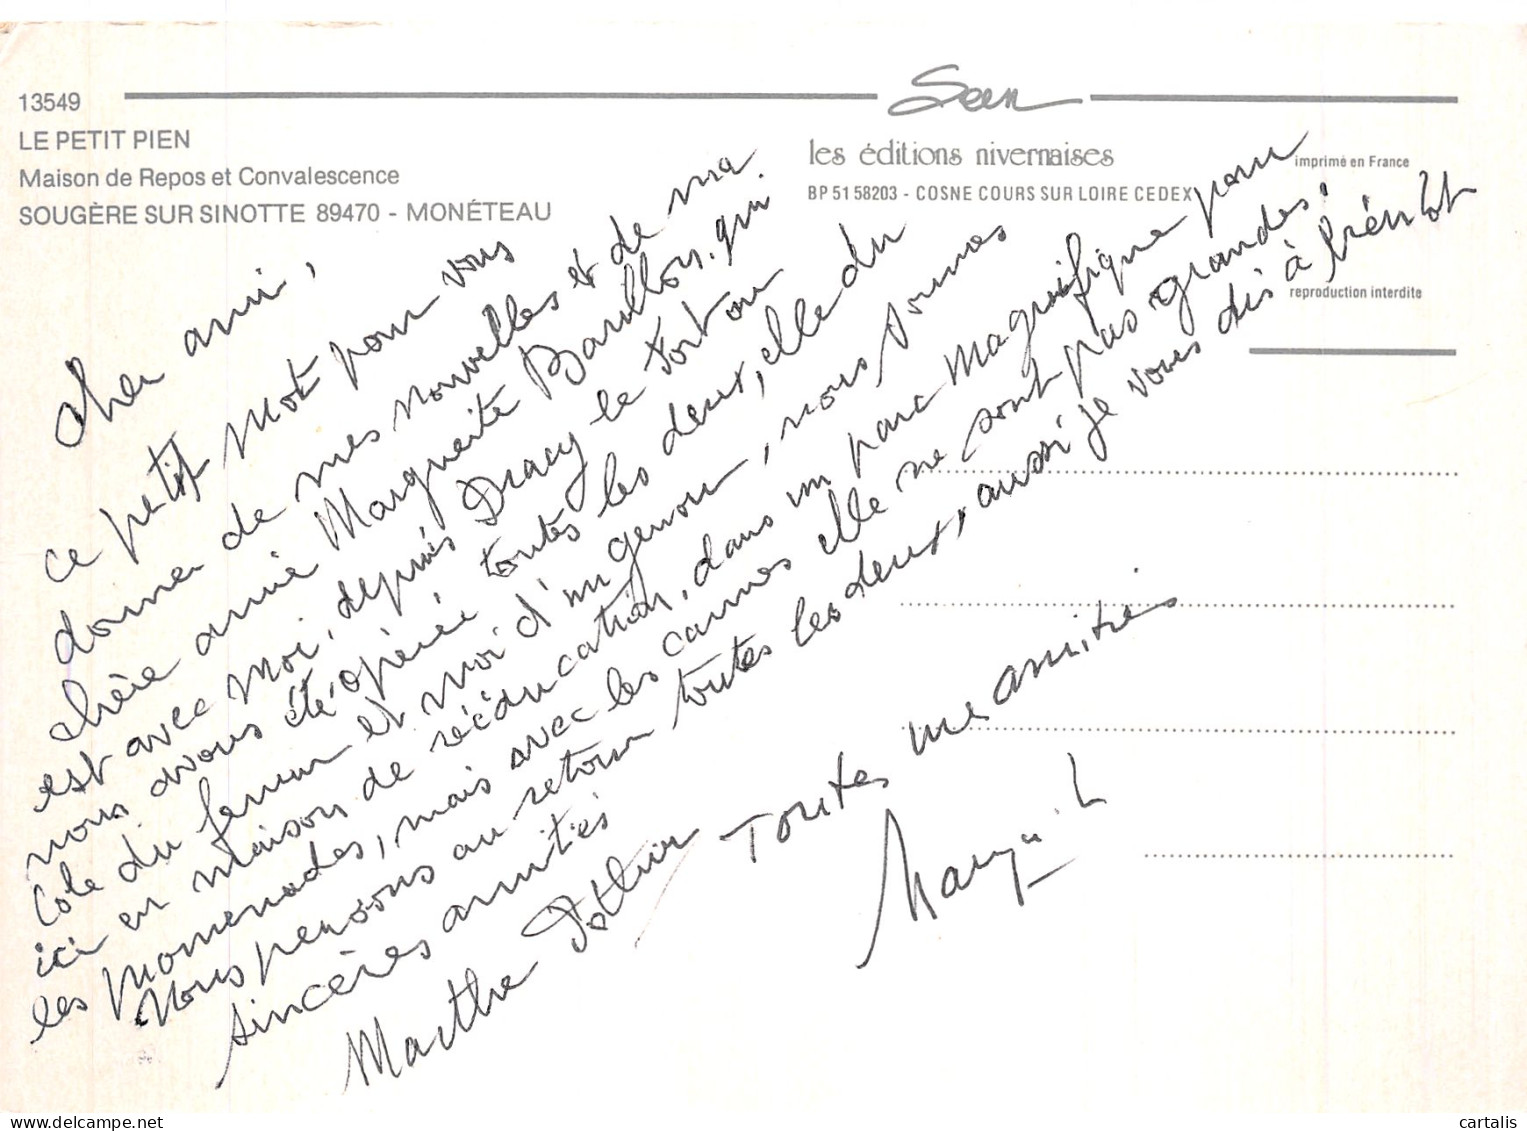 13549
LE PETIT PIEN
Maison de Repos et Convalescence
SOUGÈRE SUR SINOTTE 89470 - MONÉTEAU
les éditions nivernaises
BP 51 58203 - COSNE COURS SUR LOIRE CEDEX
imprimé en France
reproduction interdite
Cher ami,
ce petit mot pour vous
donner de mes nouvelles et de ma
chère amie Marguerite qui
est avec moi, depuis Dracy le Fort ou
nous avons été opérée toutes les deux, elle du
Côle du femur et moi d'un genou, nous sommes
ici en maison de réeducation, dans un parc magnifique pour
les promenades, mais avec les cannes elle ne sont pas grandes.
Nous pensons au retour toutes les deux, aussi je vous dis à bientôt
sincères amitiés
Marthe Toutes mes amitiés